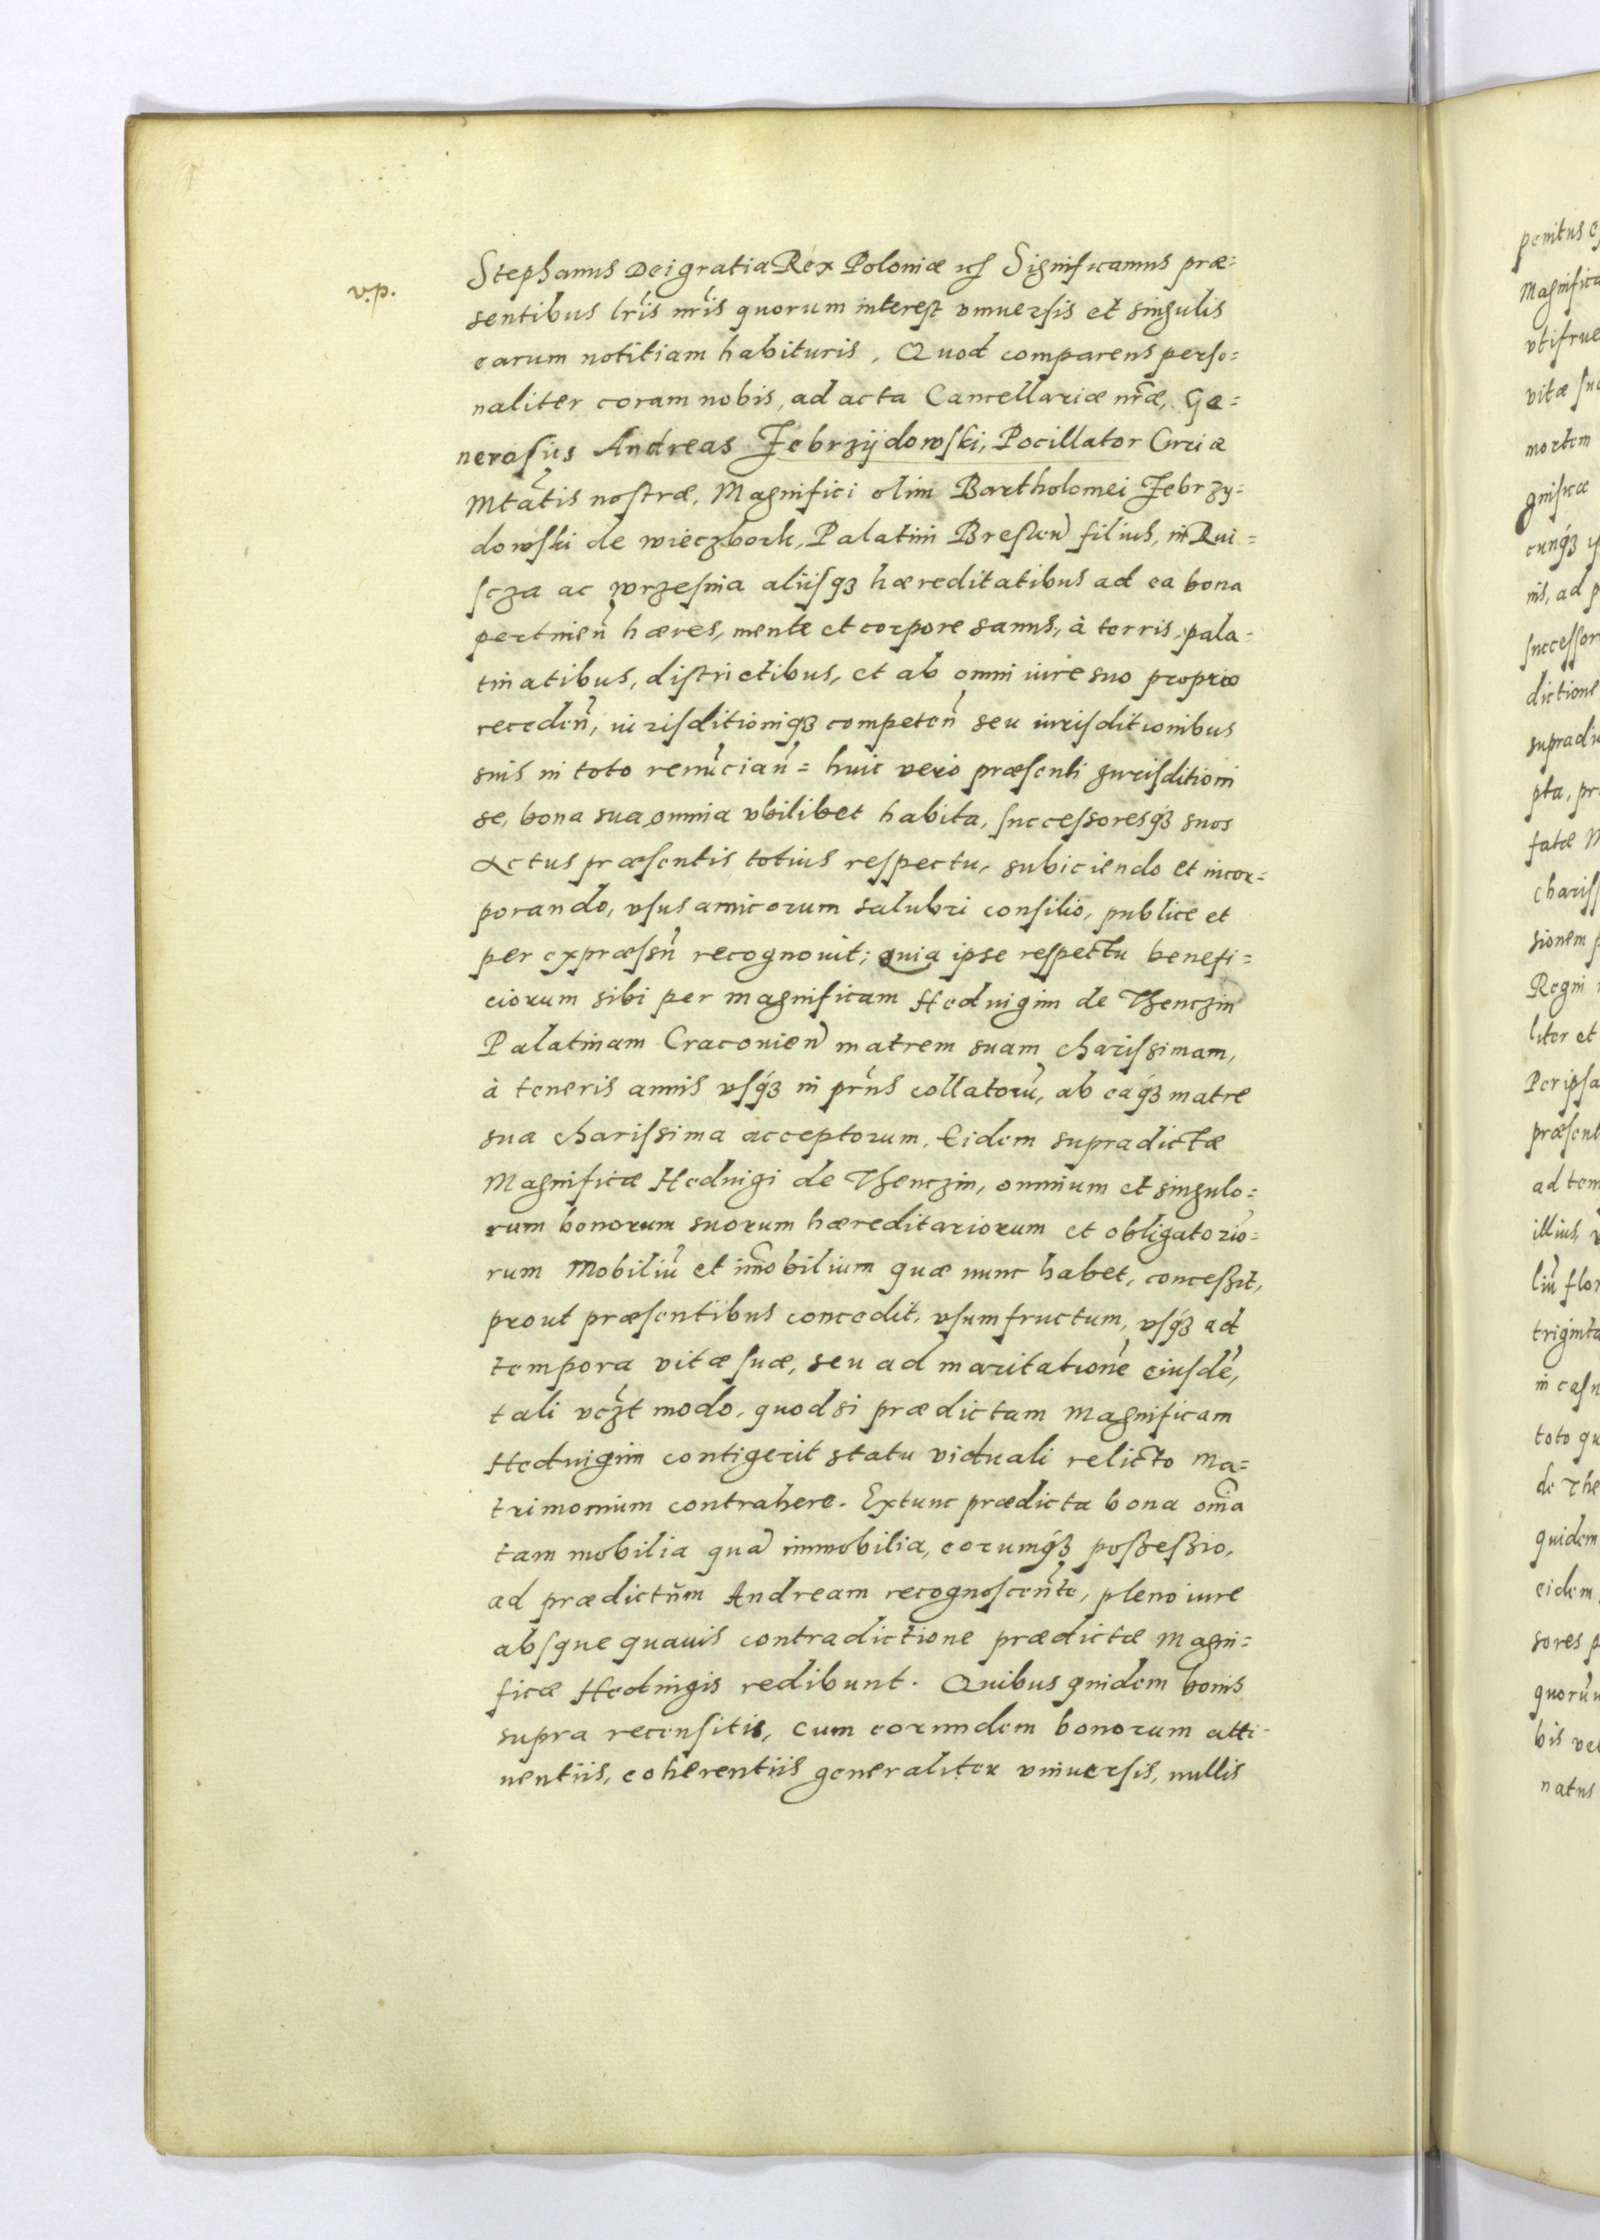 v.p.
Stephanus Dei gratia Rex Poloniæ etc Significamus præ=
sentibus lr̃is nr̃is quorum interest vniuersis et singulis
earum notitiam habituris, Quod comparens perso=
naliter coram nobis, ad acta Cancellariæ nr̃æ, Ge=
nerosus Andreas Zebrzijdowski, Pocillator Curiæ
Mtãtis nostræ, Magnifici olim Bartholomei Zebrzy=
dowski de wieczbork, Palatini Bresten̄ filius, in Rui=
scza ac wrzesnia aliisqз hæreditatibus ad ea bona
pertinen̄ hæres, mente et corpore sanus, à terris, pala=
tinatibus, districtibus, et ab omni iure suo proprio
receden̄, iurisditioniqз competen̄ seu iurisditionibus
suis in toto renũcian̄= huic vero præsenti Jurisditioni
se, bona sua omnia vbilibet habita, successoresqз suos
Actus præsentis totius respectu, subiciendo et incor=
porando, vsus amicorum salubri consilio, publice et
per expræssũ recognouit; quia ipse respectu benefi=
ciorum sibi per magnificam Heduigim de Thenczin
Palatinam Cracouien̄ matrem suam charissimam,
à teneris annis vsqз in pr̃ns collatorũ, ab eaqз matre
sua charissima acceptorum, Eidem supradictæ
Magnificæ Heduigi de Thenczin, omnium et singulo=
rum bonorum suorum hæreditariorum et obligatorio=
rum Mobiliũ et im̃obilium quæ nunc habet, concessit,
prout præsentibus concedit, vsumfructum, vsqз ad
tempora vitæ suæ, seu ad maritationẽ eiusdẽ,
tali vcz̃t modo, quod si prædictam Magnificam
Heduigim contigerit statu viduali relicto Ma=
trimonium contrahere. Extunc prædicta bona om̃ia
tam mobilia quã immobilia, eorumqз possessio,
ad prædictum Andream recognoscentẽ, pleno iure
absque quauis contradictione prædictæ Magni=
ficæ Heduigis redibunt. Quibus quidem bonis
supra recensitis, cum eorundem bonorum atti=
nentiis, coherentiis generaliter vniuersis, nullis